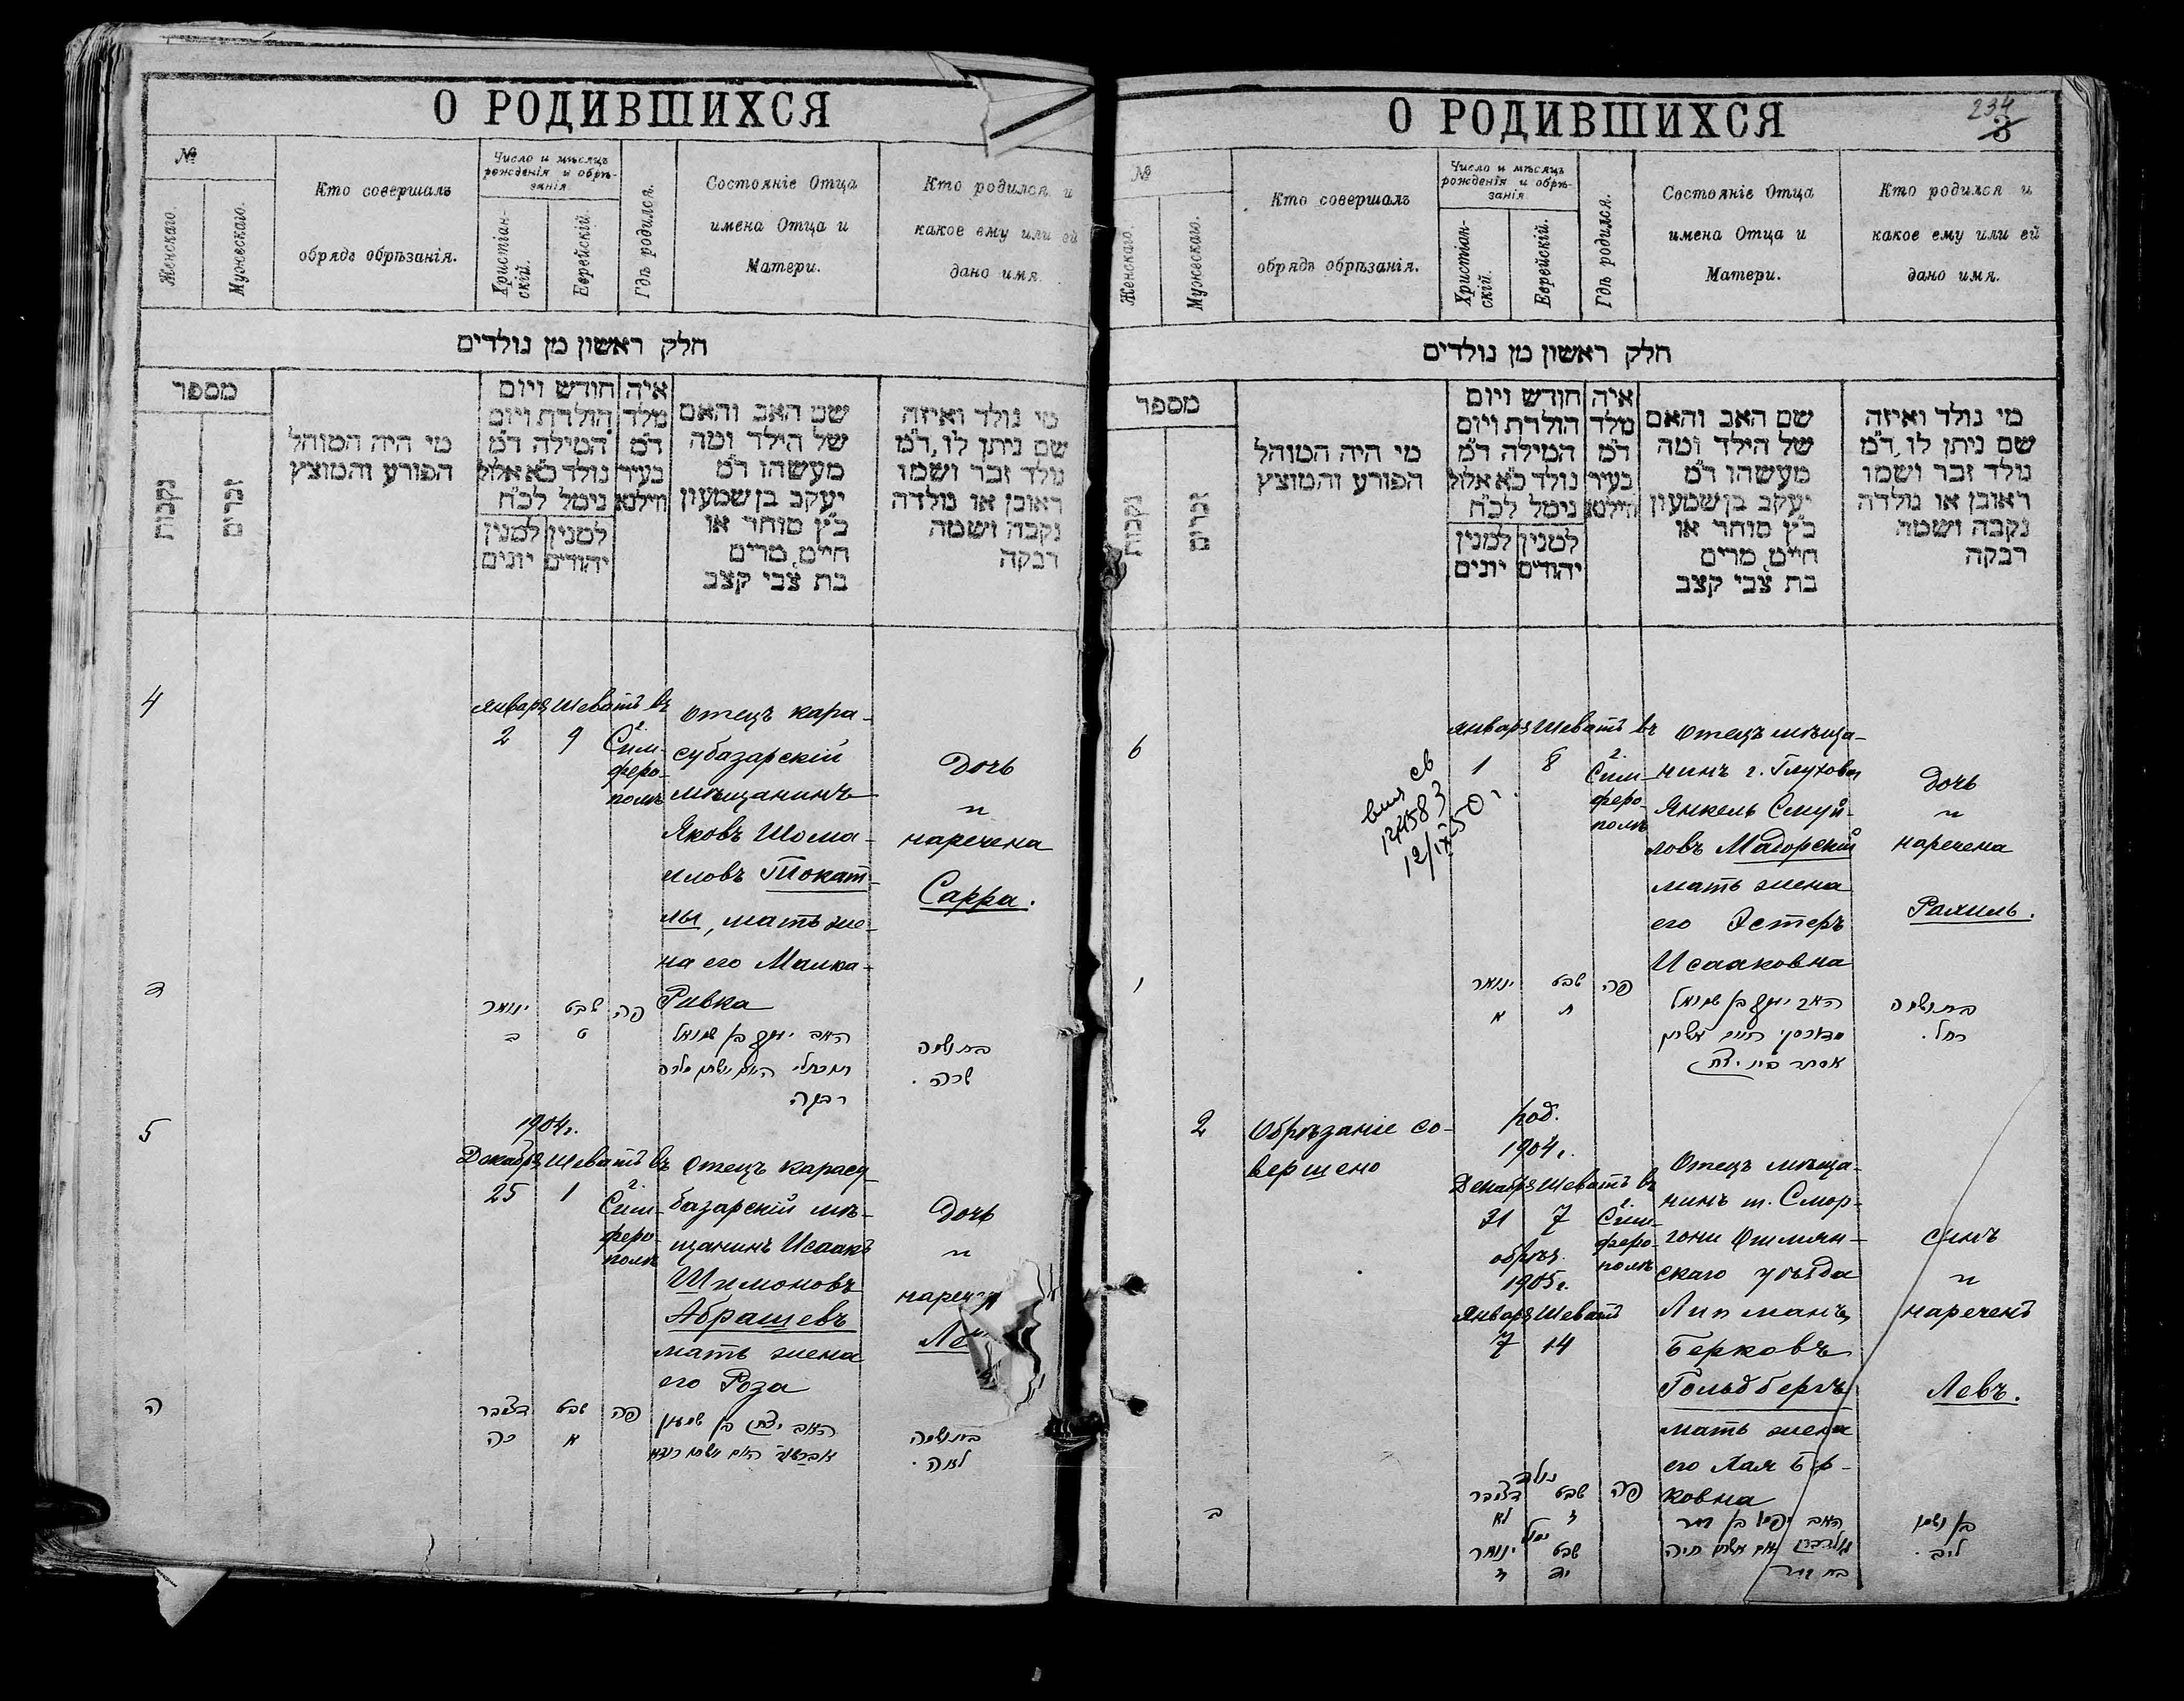 О РОДИВШИХСЯ
№
Женскаго.
Мужескаго.
Кто совершалъ
обрядъ обрѣзанія.
Число и мѣсяцъ
рожденія и обрѣ-
занія
Христіан-
скій.
Еврейскій.
Гдѣ родился.
Состояніе Отца
имена Отца и
Матери.
Кто родился и
какое ему или ей
дано имя.
חלק ראשון מן נולדים
מספר
נקבות
זכרים
מי היה המוהל
הפורע והמוצץ
חודש ויום
הולדת ויום
המילה ד״מ
נולד כ״א אלול
נימל לכ״ח
למנין למנין
יהודים יונים
איה
מלד
ד״מ
בעיר
ווילנא
שם האב והאם
של הילד ומה
מעשהו ד״מ
יעקב בן שמעון
כ״ץ סוחר או
חייט מרים
בת צבי קצב
מי נולד ואיזה
שם ניתן לו ד״מ
נולד זכר ושמו
ראובן או נולדה
נקבה ושמה
רבקה
4
Января Шеватъ въ
2 9
г.
Сим-
феро-
полѣ
Отецъ кара-
субазарскій
мѣщанинъ
Яковъ Шома-
иловъ Токат-
лы, мать же-
на его Малка-
Ривка
Дочь
"
наречена
Сарра.
ינואר שבט פה
ב ט
האב יוסף בן שמואל
רבקה
בת ושמה
שרה.
5
1904 г.
Декабря Шеватъ въ
25 1
г.
Сим-
феро-
полѣ
Отецъ карасу-
базарскій мѣ-
щанинъ Исаакъ
Шимоновъ
Абрашевъ
мать жена
его Роза
Дочь
"
Ле
ה
דצובר שבט פה
כה א
האב יצחק בן שמעון
בת ושמה
לאה.
О РОДИВШИХСЯ
234
3
№
Женскаго.
Мужескаго.
Кто совершалъ
обрядъ обрѣзанія.
Число и мѣсяцъ
рожденія и обрѣ-
занія
Христіан-
скій.
Еврейскій.
Гдѣ родился.
Состояніе Отца
имена Отца и
Матери.
Кто родился и
какое ему или ей
дано имя.
חלק ראשון מן נולדים
מספר
נקבות
זכרים
מי היה המוהל
הפורע והמוצץ
חודש ויום
הולדת ויום
המילה ד״מ
נולד כ״א אלול
נימל לכ״ח
למנין למנין
יהודים יונים
איה
מלד
ד״מ
בעיר
ווילנא
שם האב והאם
של הילד ומה
מעשהו ד״מ
יעקב בן שמעון
כ״ץ סוחר או
חייט מרים
בת צבי קצב
מי נולד ואיזה
שם ניתן לו ד״מ
נולד זכר ושמו
ראובן או נולדה
נקבה ושמה
רבקה
6
св
12/IX 50 г.
Января Шеватъ въ
1 8
г.
Сим-
феро-
полѣ
Отецъ мѣща-
нинъ г. Глухова
Янкель Смуй-
ловъ Мадорскій
мать жена
его Эстеръ
Исааковна
Дочь
"
наречена
Рахиль.
ינואר שבט פה
א ח
אסתר בת יצחק
בת ושמה
רחל.
2
Обрѣзаніе со-
вершено
род.
1904 г.
Декабря Шеватъ въ
31 7
г.
Сим-
феро-
полѣ
обрѣз.
1905 г.
Января Шеватъ
7 14
Отецъ мѣща-
нинъ м. Смор-
гони Ошмян-
скаго уѣзда
Липманъ
Берковъ
Гольдбергъ
мать жена
его Хая Бер-
ковна
сынъ
"
нареченъ
Левъ.
ב
נולד
דצובר שבט פה
לא ז
ינואר שבט
ז יד
בן ושמו
ליב.